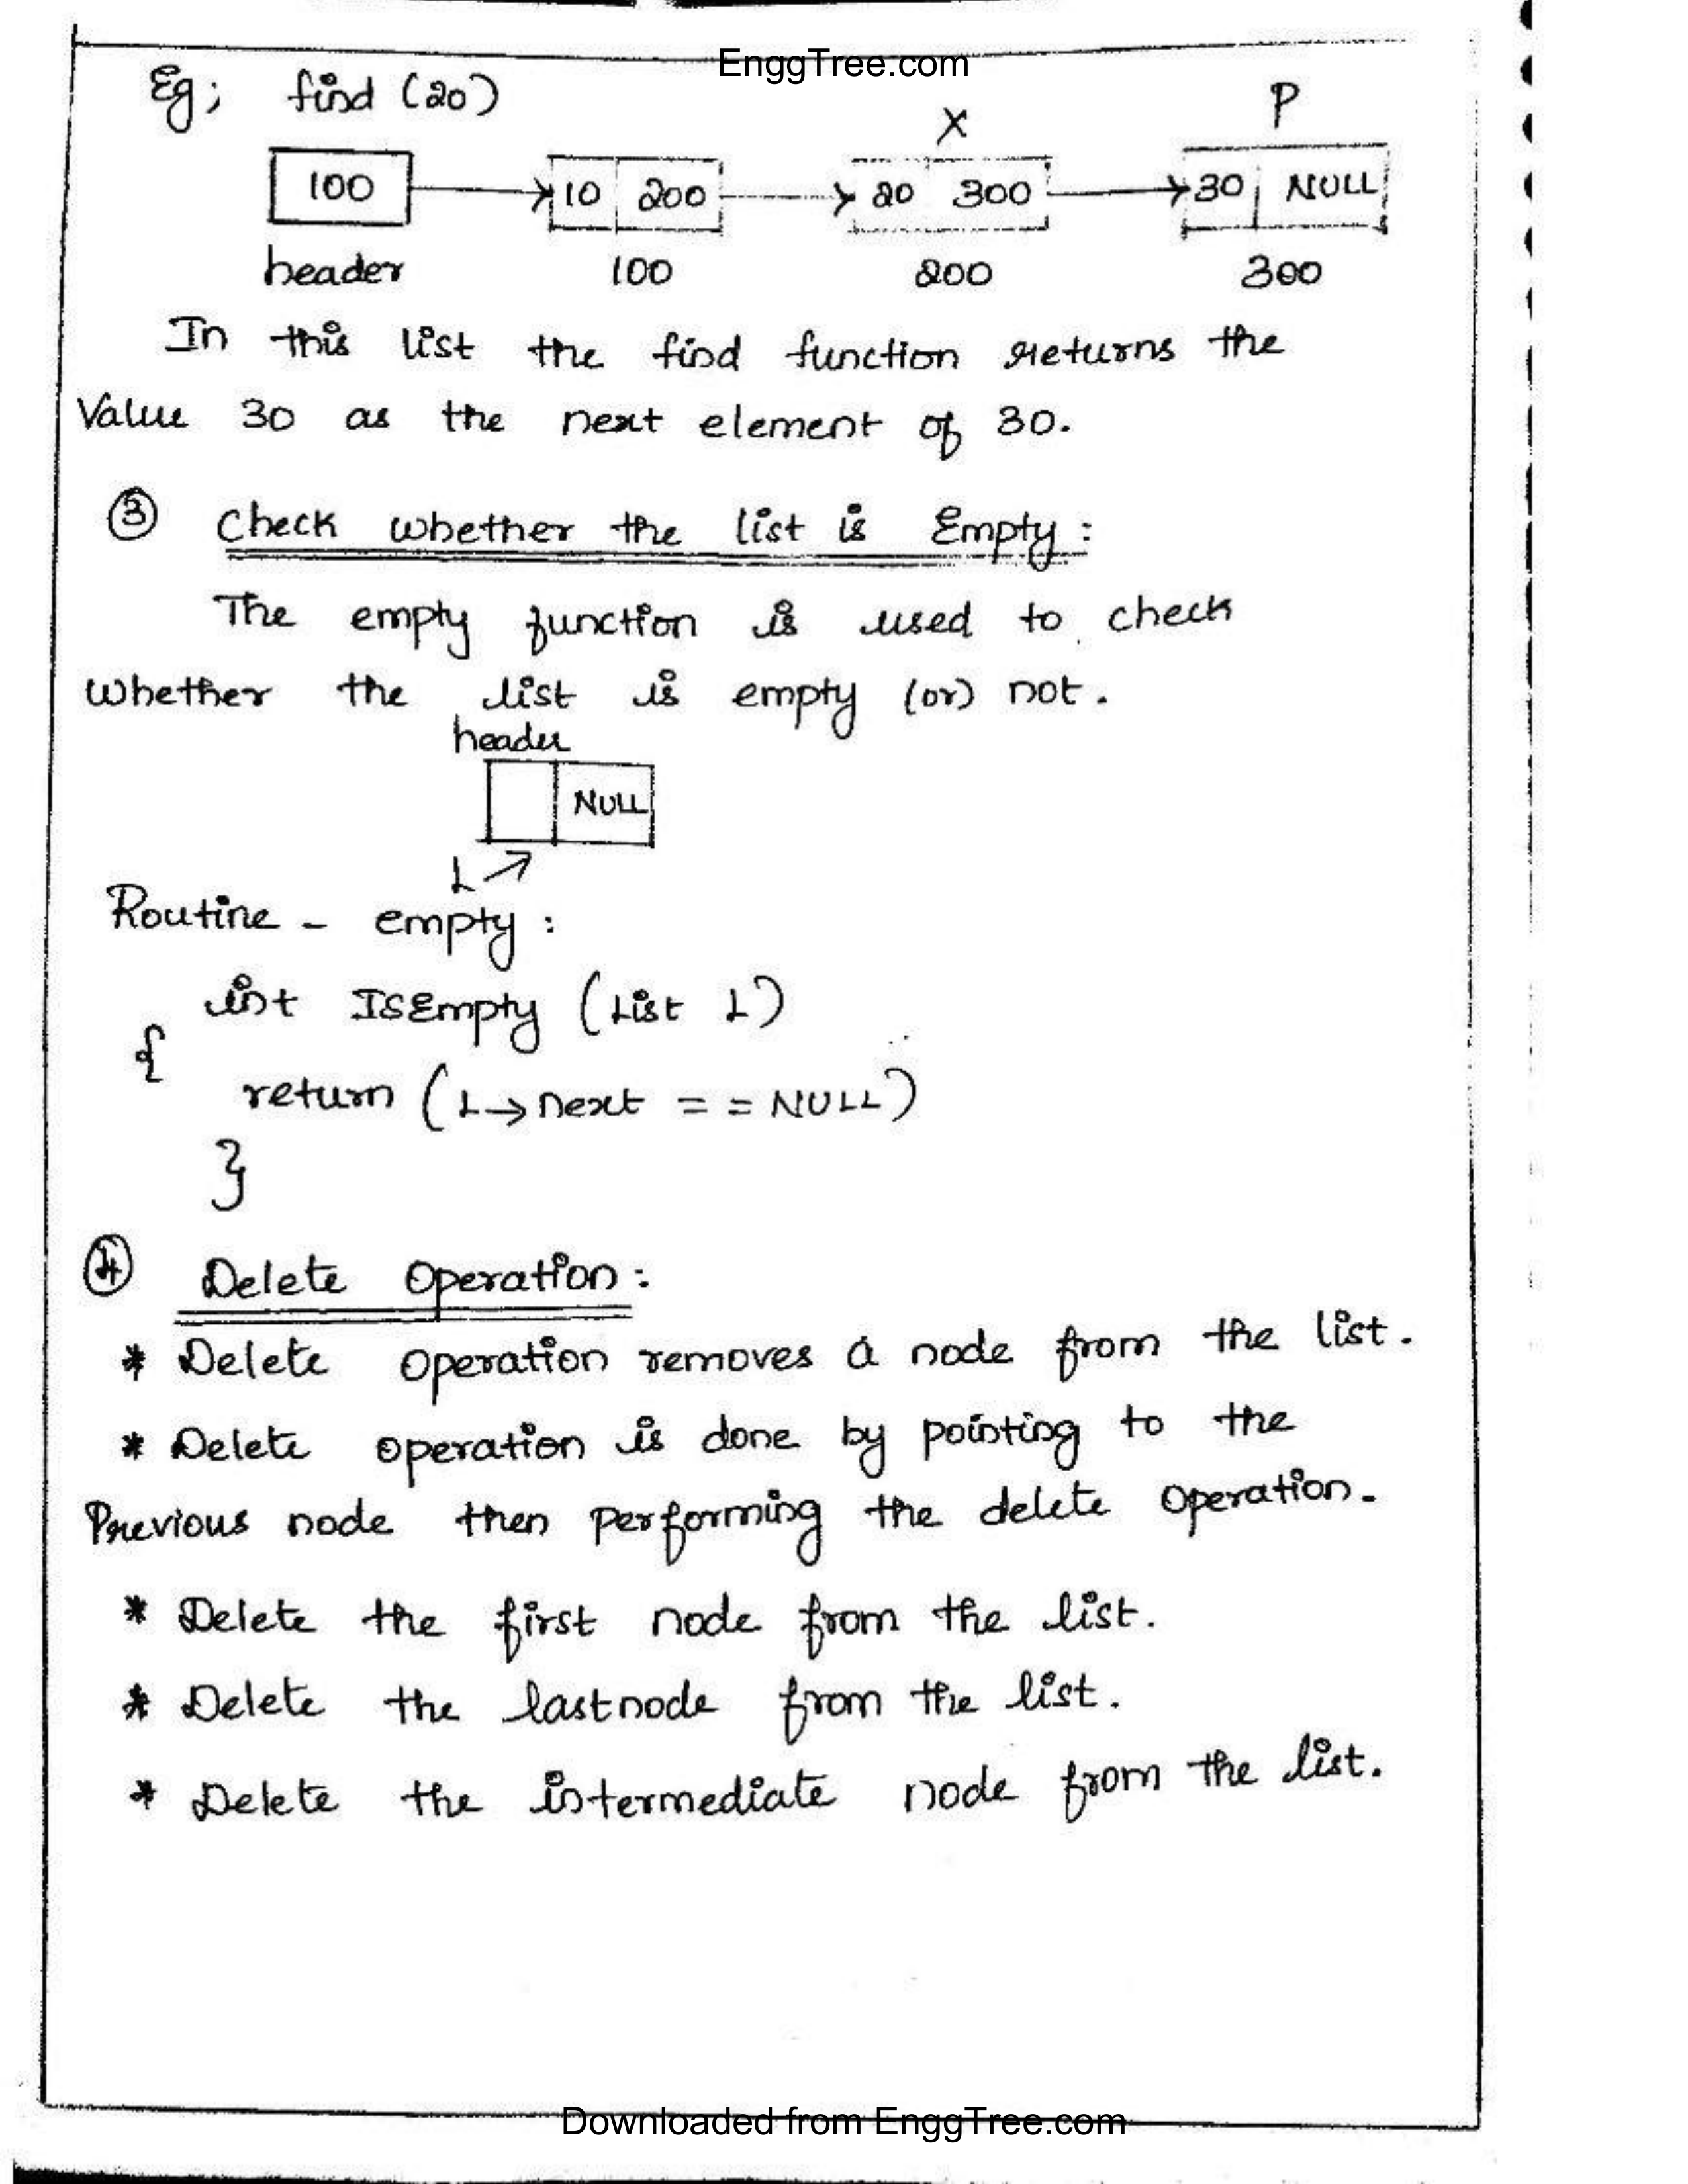 EnggTree.com
Eg; find (20)
X P
100 10 200 20 300 30 NULL
header 100 200 300
In this list the find function returns the
Value 30 as the next element of 30.
③ Check whether the list is Empty:
The empty function is used to check
whether the list is empty (or) not.
header
NULL
L
Routine - empty:
int IsEmpty (List L)
{
return (L→next = = NULL)
}
④ Delete Operation:
* Delete operation removes a node from the list.
* Delete operation is done by pointing to the
Previous node then performing the delete operation.
* Delete the first node from the list.
* Delete the lastnode from the list.
* Delete the intermediate node from the list.
Downloaded from EnggTree.com